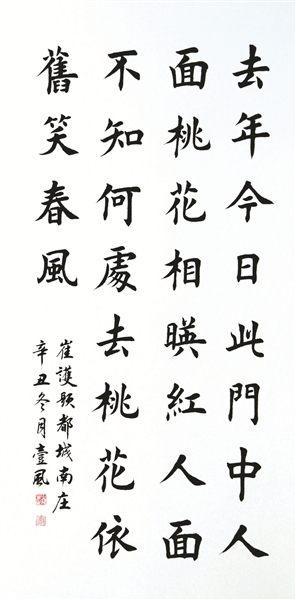 去年今日此門中人
面桃花相暎紅人面
不知何處去桃花依
舊笑春風
崔護題都城南庄
辛丑冬月壹風